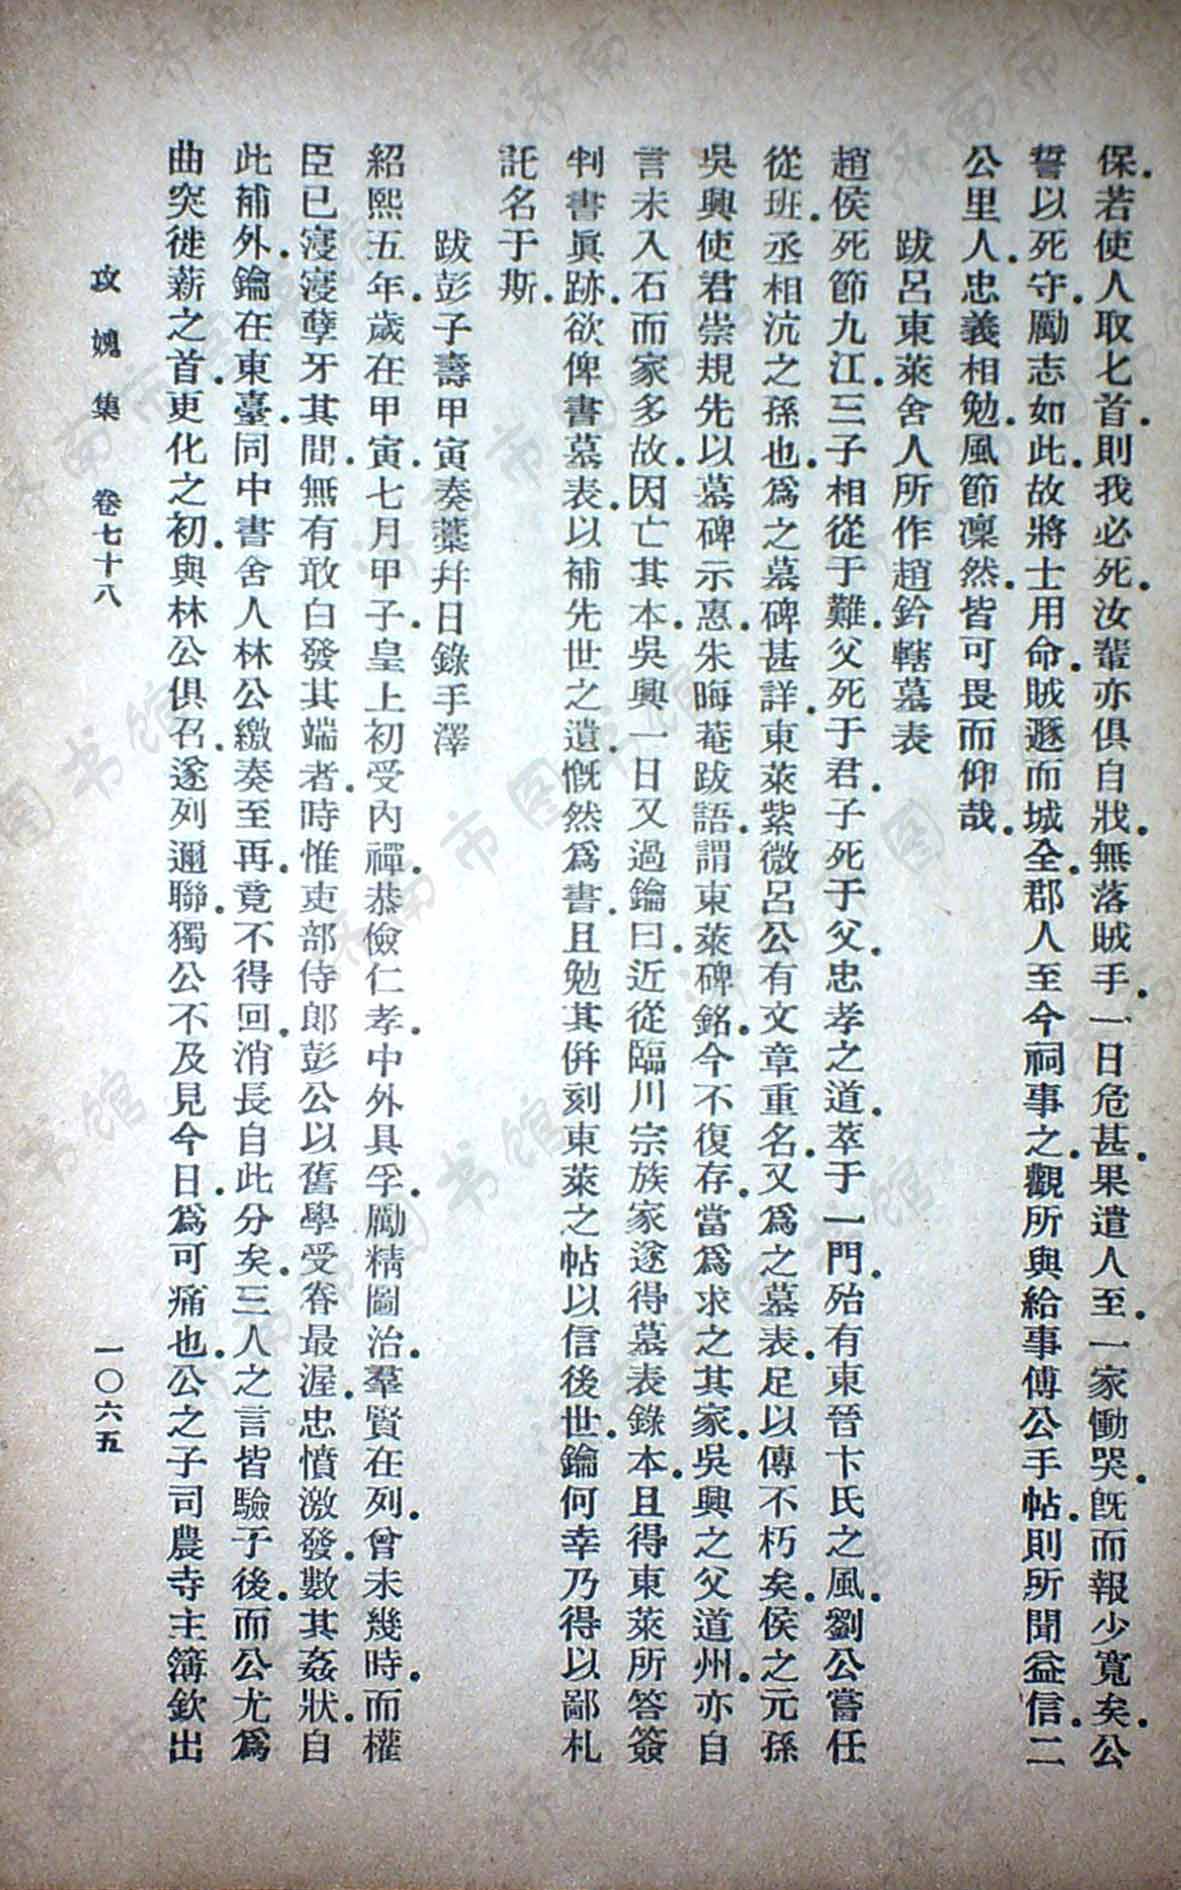 保．若使人取匕首．則我必死．汝輩亦俱自戕．無落賊手．一日危甚．果遣人至．一家慟哭．旣而報少寬矣．公
誓以死守．勵志如此．故將士用命．賊遯而城全．郡人至今祠事之．觀所與給事傅公手帖．則所聞益信．二
公里人．忠義相勉．風節凜然．皆可畏而仰哉．
跋呂東萊舍人所作趙鈐轄墓表
趙侯死節九江．三子相從于難．父死于君．子死于父．忠孝之道．萃于一門．殆有東晉卞氏之風．劉公嘗任
從班．丞相沆之孫也．爲之墓碑甚詳．東萊紫微呂公有文章重名．又爲之墓表．足以傳不朽矣．侯之元孫
吳興使君崇規先以墓碑示惠．朱晦菴跋語．謂東萊碑銘．今不復存．當爲求之其家．吳興之父道州．亦自
言未入石而家多故．因亡其本．吳興一日又過鑰曰．近從臨川宗族家遂得墓表錄本．且得東萊所答簽
判書眞跡．欲俾書墓表．以補先世之遺．慨然爲書．且勉其倂刻東萊之帖以信後世．鑰何幸乃得以鄙札
託名于斯．
跋彭子壽甲寅奏藳幷日錄手澤
紹熙五年．歲在甲寅．七月甲子．皇上初受內禪．恭儉仁孝．中外具孚．勵精圖治．羣賢在列．曾未幾時．而權
臣已寖寖孽牙其間．無有敢白發其端者．時惟吏部侍郎彭公以舊學受眷最渥．忠憤激發．數其姦狀．自
此補外．鑰在東臺．同中書舍人林公繳奏至再．竟不得回．消長自此分矣．三人之言皆驗于後．而公尤爲
曲突徙薪之首．更化之初．與林公俱召．遂列邇聯．獨公不及見今日．爲可痛也．公之子司農寺主簿欽出
攻媿集　卷七十八　一〇六五
济南市图书馆